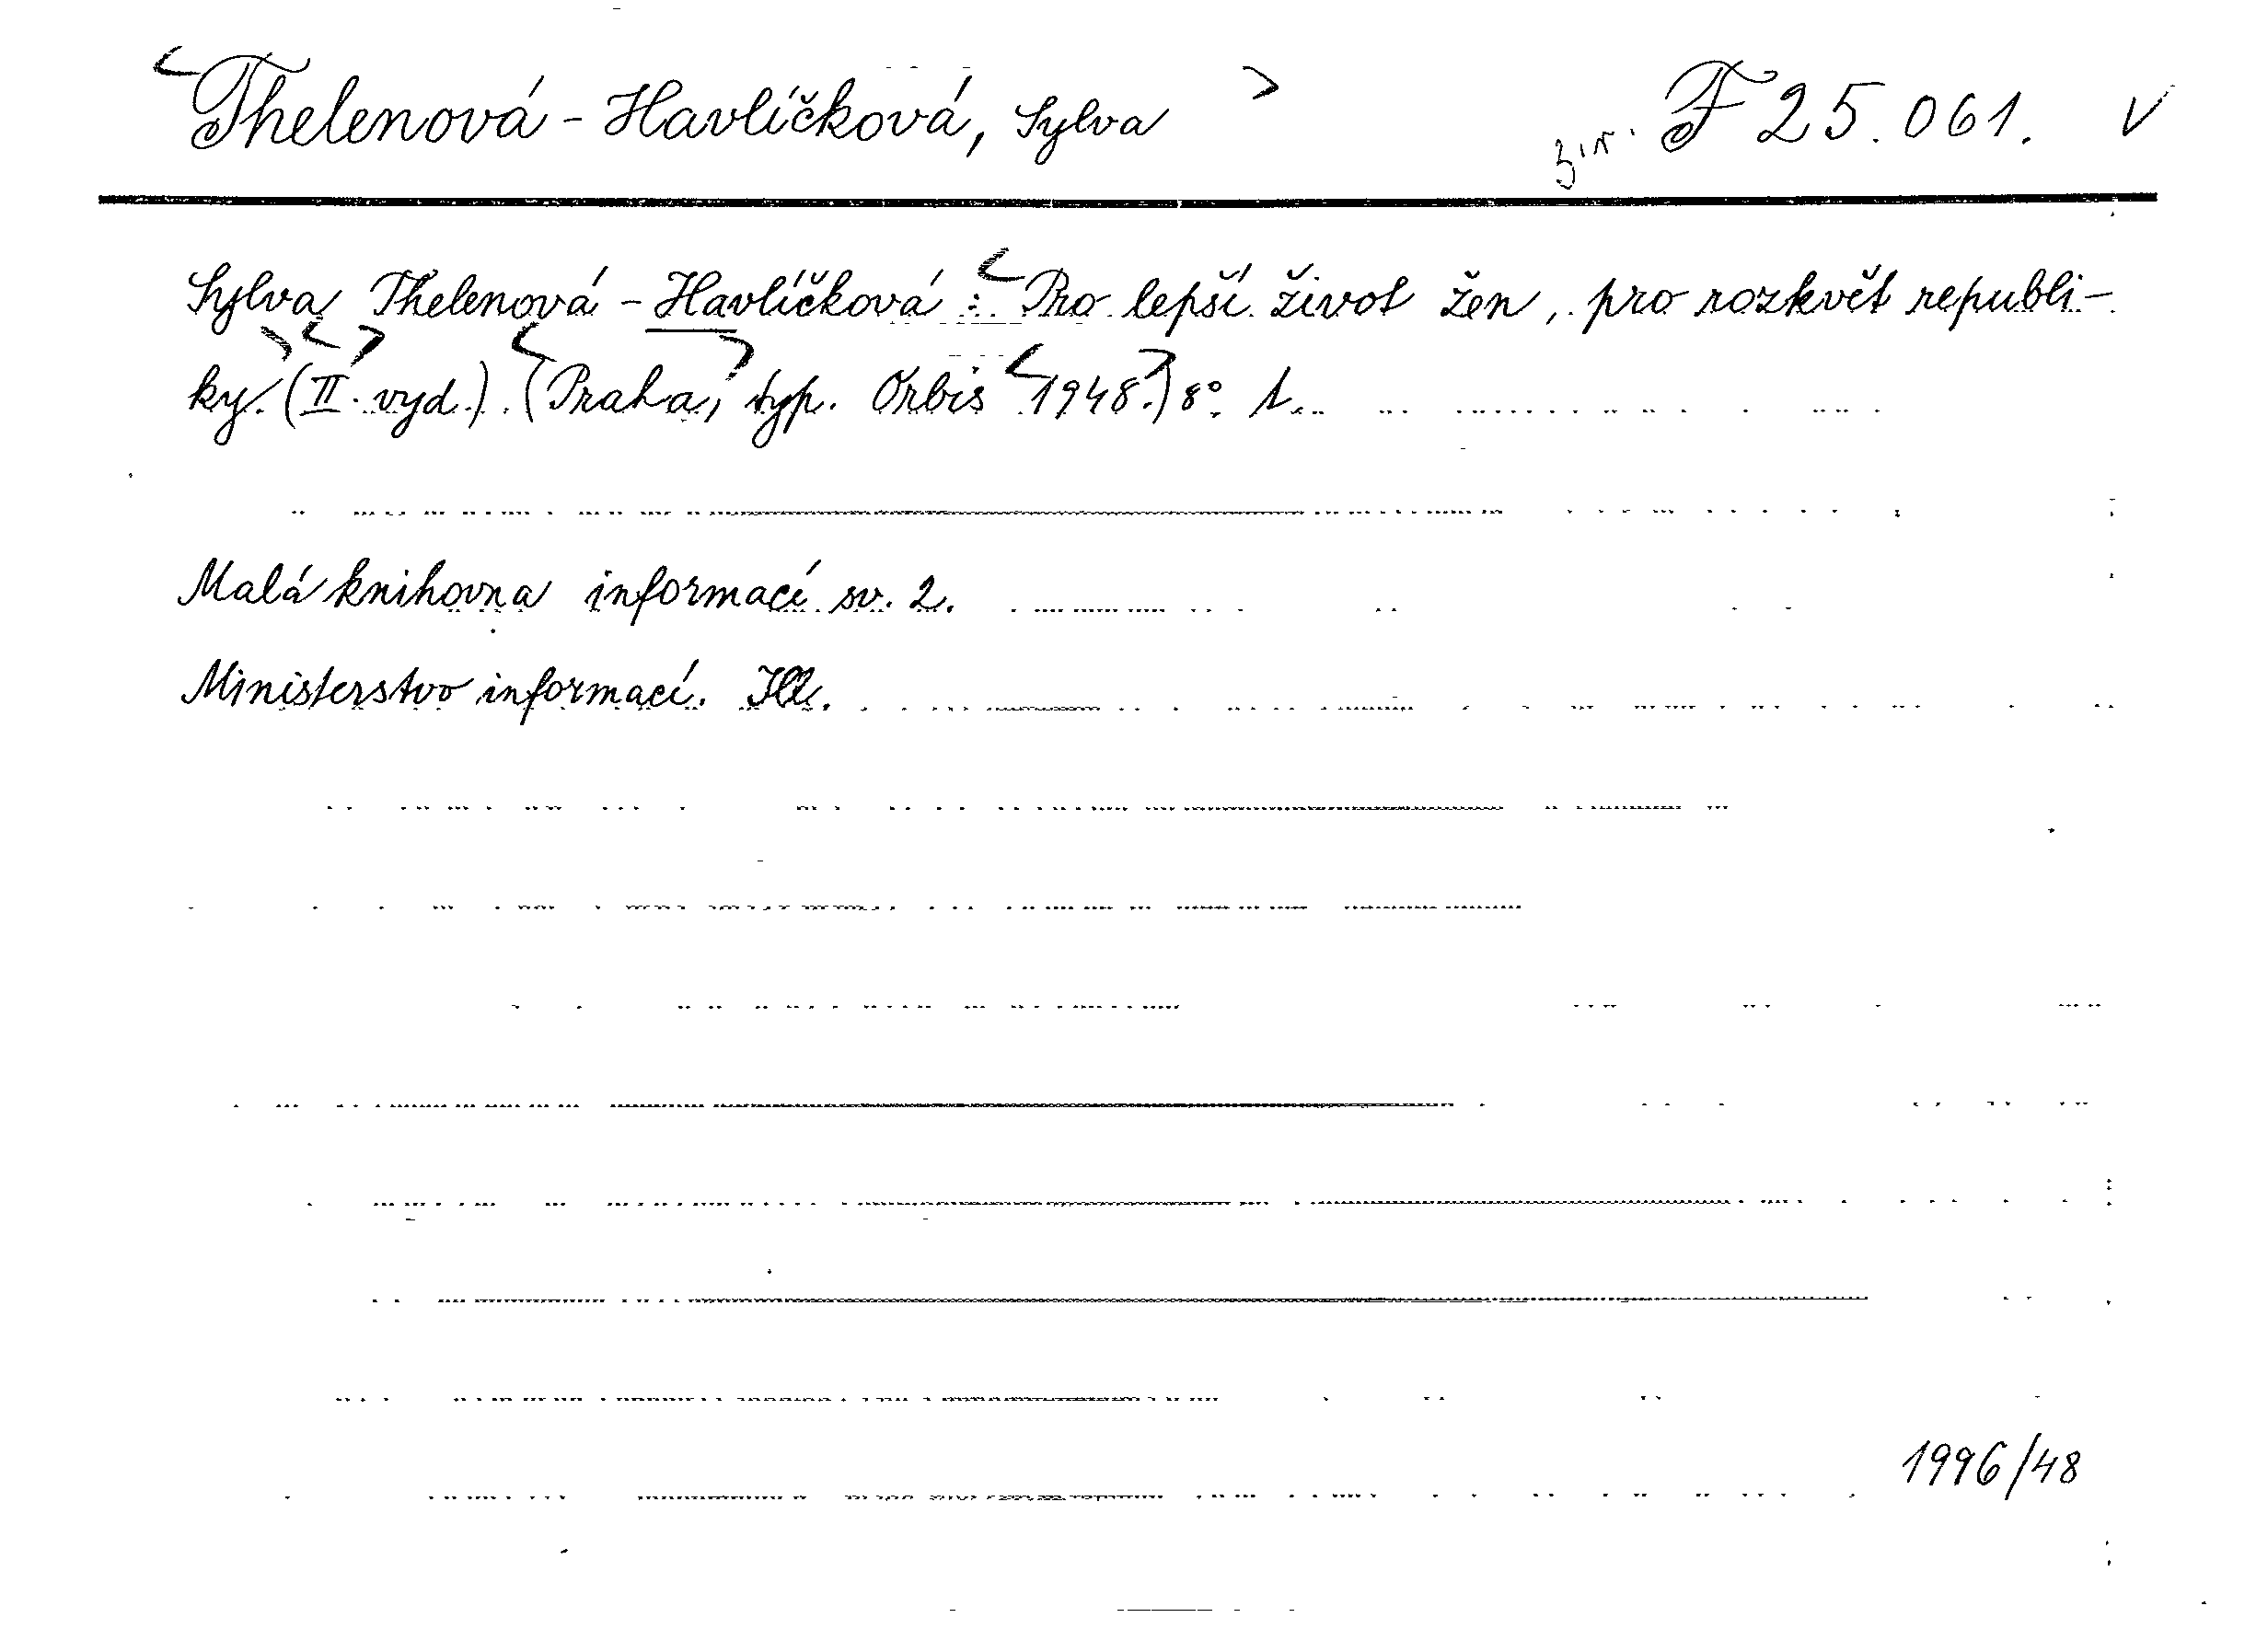 Thelenová - Havlíčková, Sylva F 25.061. v
Sylva Thelenová - Havlíčková : Pro lepší život žen, pro rozkvět republi-
ky. (II. vyd.) (Praha, typ. Orbis 1948.) 8°. 1.
Malá knihovna informací sv. 2.
Ministerstvo informací. Ill.
1996/48